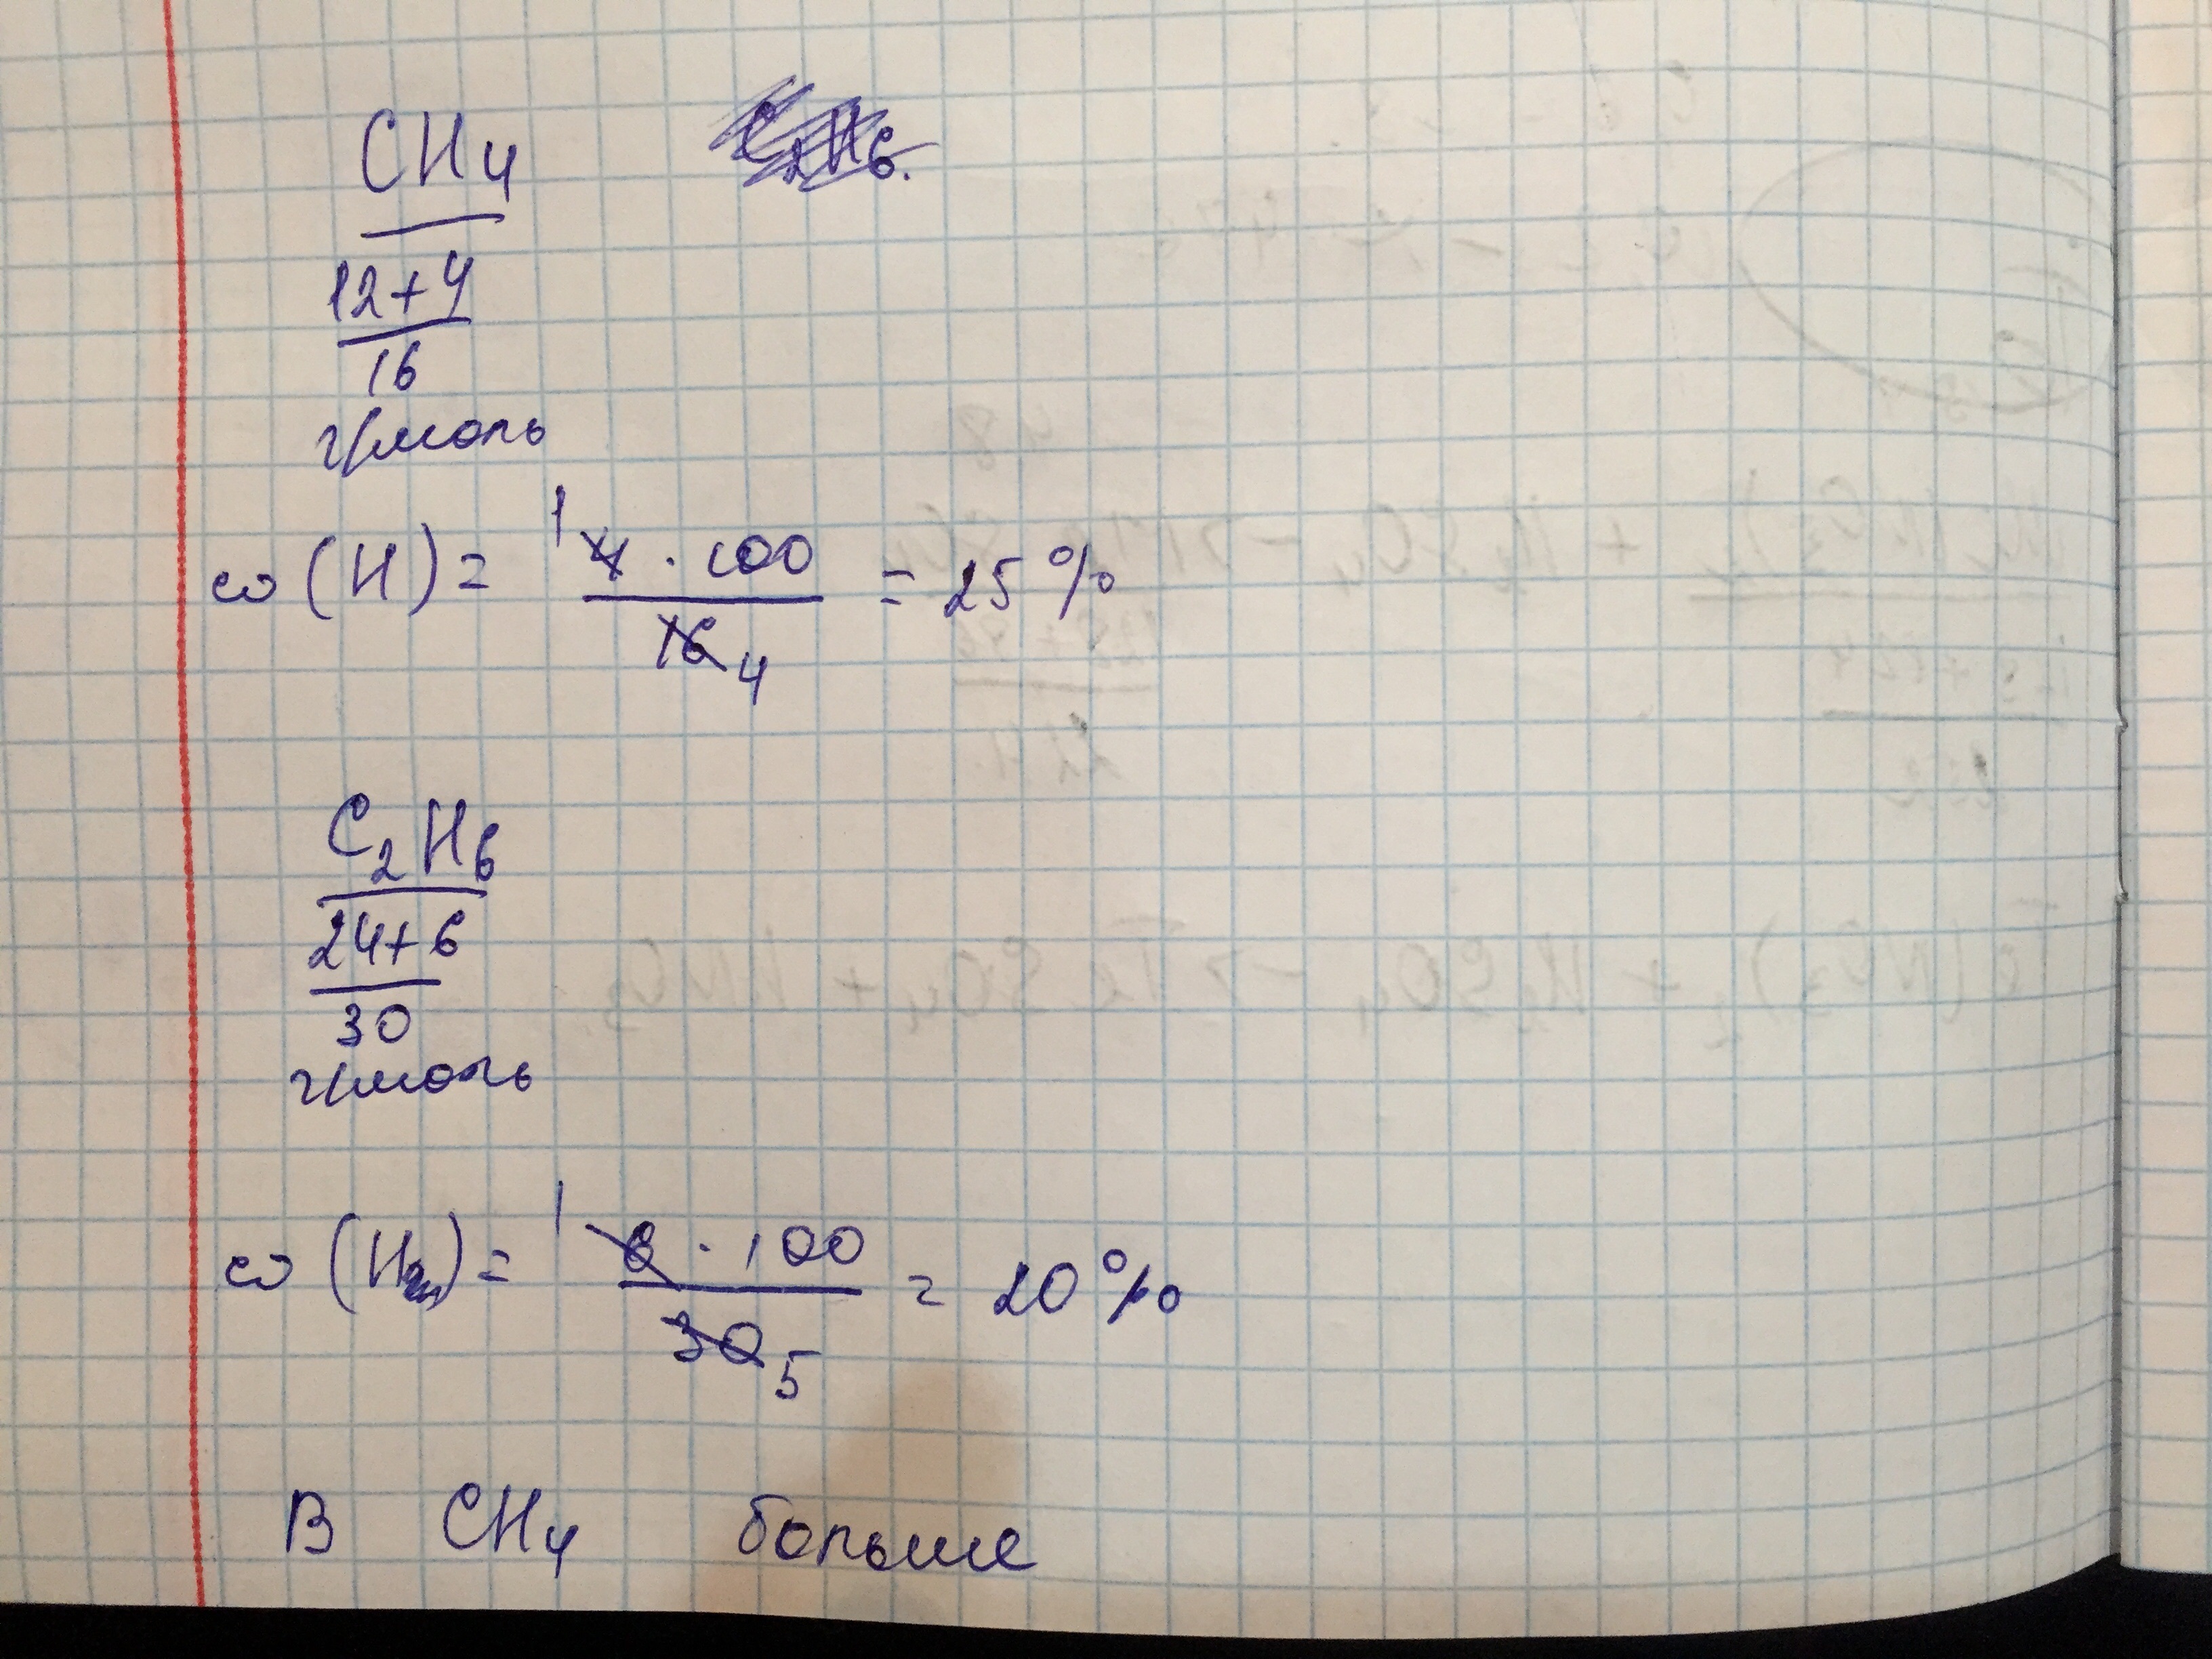 CH₄
12+4
16
г/моль
ω (H) = 1 4 · 100 = 25 %
16 4
C₂H₆
24+6
30
г/моль
ω (H) = 1 6 · 100 = 20 %
30 5
В CH₄ больше